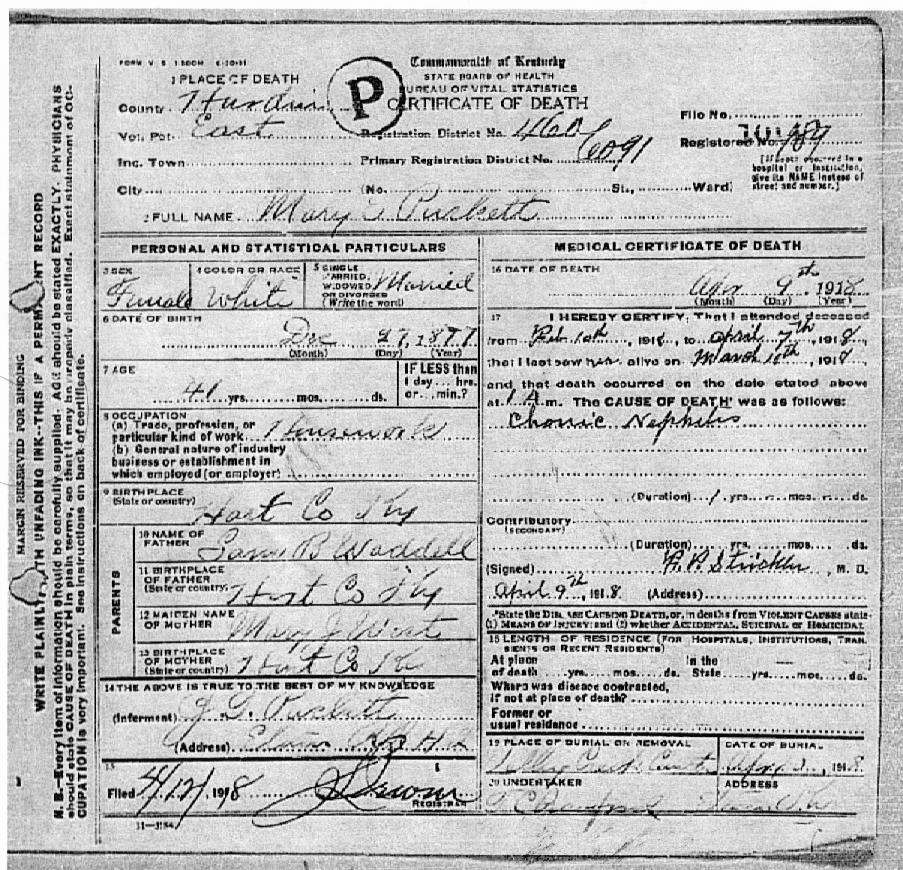 FORM V. S. 1-500M 6-30-11
Commonwealth of Kentucky
STATE BOARD OF HEALTH
BUREAU OF VITAL STATISTICS
CERTIFICATE OF DEATH
P
1 PLACE OF DEATH
County Hardin
Vot. Pct. East
Registration District No. 460
File No.
Registered No. 189
Inc. Town
Primary Registration District No. 6091
[If death occurred in a hospital or institution, give its NAME instead of street and number.]
City (No. St., Ward)
2 FULL NAME Mary Puckett
PERSONAL AND STATISTICAL PARTICULARS
3 SEX Female
4 COLOR OR RACE White
5 SINGLE MARRIED, WIDOWED OR DIVORCED (Write the word) Married
6 DATE OF BIRTH
Dec 27, 1877
(Month) (Day) (Year)
7 AGE
41 yrs. mos. ds.
IF LESS than 1 day... hrs. or... min.?
8 OCCUPATION
(a) Trade, profession, or particular kind of work Housework
(b) General nature of industry
business or establishment in
which employed (or employer)
9 BIRTHPLACE
(State or country) Hart Co Ky
PARENTS
10 NAME OF FATHER B Waddell
11 BIRTHPLACE OF FATHER (State or country) Hart Co Ky
12 MAIDEN NAME OF MOTHER Mary
13 BIRTHPLACE OF MOTHER (State or country) Hart Co Ky
14 THE ABOVE IS TRUE TO THE BEST OF MY KNOWLEDGE
(Informant) J. T. Puckett
(Address)
15
Filed 4/12/, 1918
REGISTRAR
11-3184
MEDICAL CERTIFICATE OF DEATH
16 DATE OF DEATH
Apr 9th 1918
(Month) (Day) (Year)
17 I HEREBY CERTIFY, That I attended deceased
from Feb 10th, 1918, to April 7th 1918,
that I last saw her alive on March 10th, 1918
and that death occurred on the date stated above
at 1 A m. The CAUSE OF DEATH* was as follows:
Chronic Nephritis
(Duration) 1 yrs. mos. ds.
Contributory
(SECONDARY)
(Duration) yrs. mos. ds.
(Signed) Strickler, M. D.
April 9th, 1918 (Address)
*State the DISEASE CAUSING DEATH, or, in deaths from VIOLENT CAUSES state
(1) MEANS OF INJURY; and (2) whether ACCIDENTAL, SUICIDAL or HOMICIDAL
18 LENGTH OF RESIDENCE (FOR HOSPITALS, INSTITUTIONS, TRANSIENTS OR RECENT RESIDENTS)
At place of death yrs. mos. ds. In the State yrs. mos. ds.
Where was disease contracted,
if not at place of death?
Former or
usual residence
19 PLACE OF BURIAL OR REMOVAL
DATE OF BURIAL
1918
20 UNDERTAKER
ADDRESS
MARGIN RESERVED FOR BINDING
WRITE PLAINLY, WITH UNFADING INK--THIS IF A PERMANENT RECORD
N.B.--Every item of information should be carefully supplied. AGE should be stated EXACTLY. PHYSICIANS
should state CAUSE OF DEATH in plain terms, so that it may be properly classified. Exact statement of OC-
CUPATION is very important. See instructions on back of certificate.